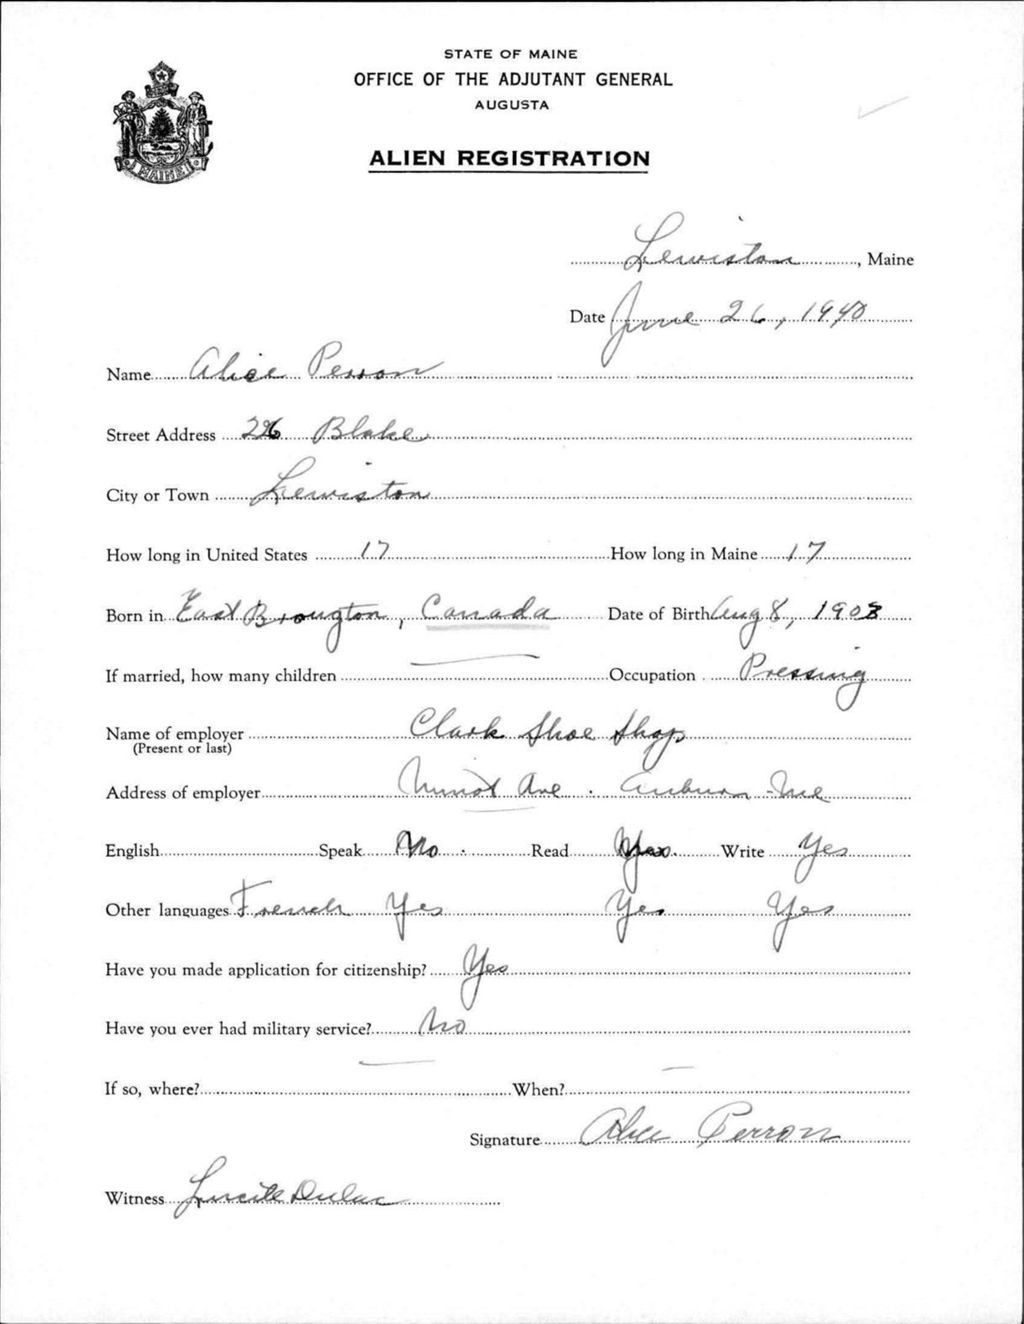 STATE OF MAINE
OFFICE OF THE ADJUTANT GENERAL
AUGUSTA
ALIEN REGISTRATION
MAINE
Lewiston, Maine
Date June 26, 1940
Name Alice Perron
Street Address 226 Blake
City or Town Lewiston
How long in United States 17 How long in Maine 17
Born in East Brougton, Canada Date of Birth Aug 8, 1903
If married, how many children — Occupation Pressing
Name of employer Clark Shoe Shop
(Present or last)
Address of employer Minot Ave. Auburn Me
English Speak No. Read Yes. Write Yes
Other languages French Yes Yes Yes
Have you made application for citizenship? Yes
Have you ever had military service? No
If so, where? — When? —
Signature Alice Perron
Witness Lucille Dulac